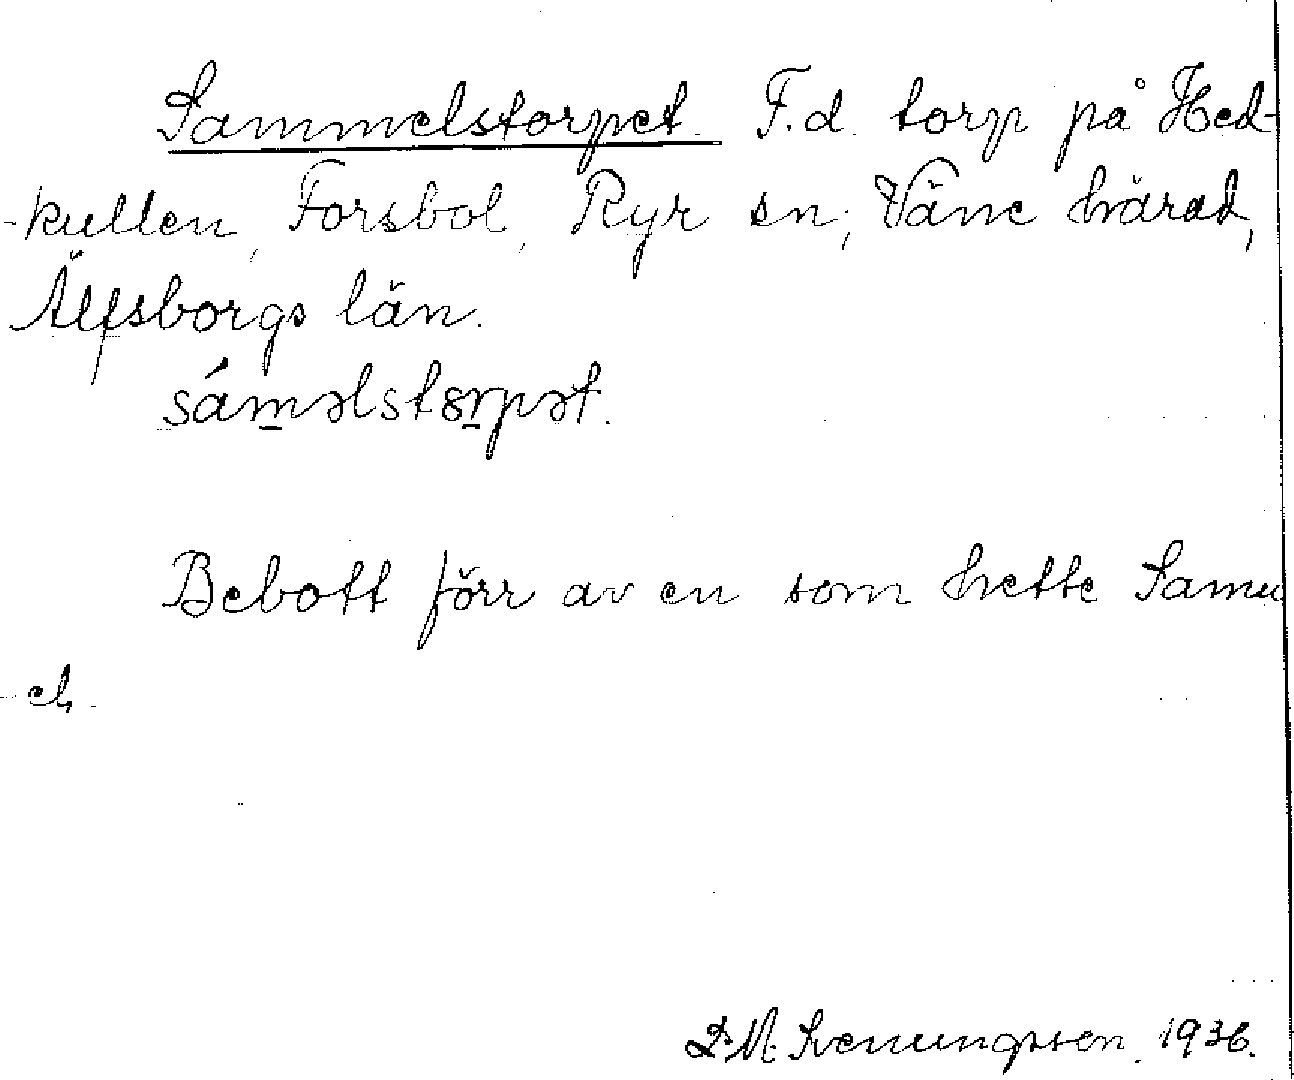 Sammelstorpet. F.d. torp på Hed-
-kullen, Forsbol, Ryr sn, Väne härad,
Älfsborgs län.
sáməlstɵrpət.
Bebott förr av en som hette Samu
-el.
Svenungsson. 1936.